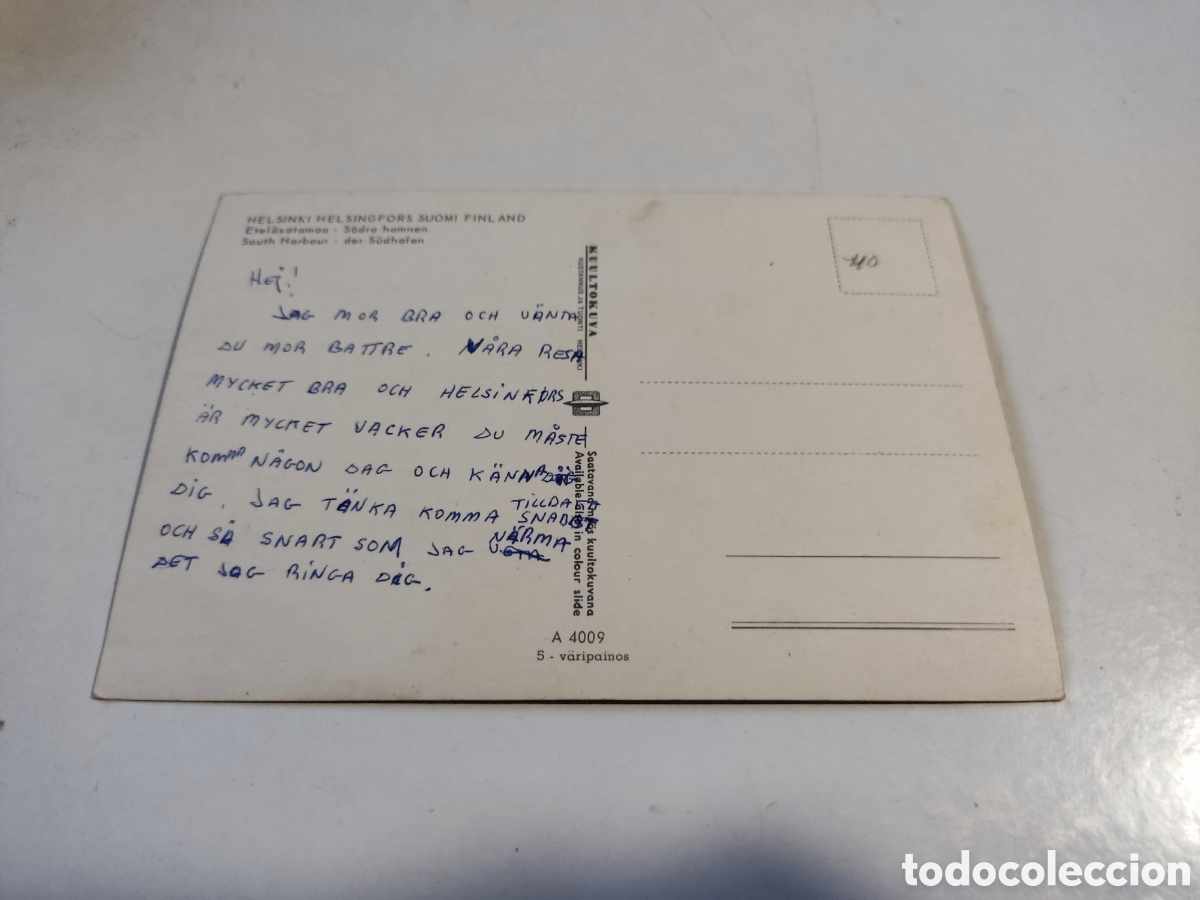 HELSINKI HELSINGFORS SUOMI FINLAND
Eteläsatama - Södra hamnen
South Harbour - der Südhafen
HEJ!
JAG MOR BRA OCH VÄNTA
DU MOR BATTRE. VÅRA RESA
MYCKET BRA OCH HELSINKFORS
ÄR MYCKET VACKER DU MÅSTE
KOMMA NÅGON DAG OCH KÄNNA
DIG. JAG TÄNKA KOMMA SNABBT TILLBAKA
OCH SÅ SNART SOM JAG NÄRMA
DET JAG RINGA DIG.
KUULTOKUVA
KUSTANNUS JA TUONTI HELSINKI
Saatavana myös kuultokuvana
Available also in colour slide
A 4009
5 - väripainos
40
todocoleccion